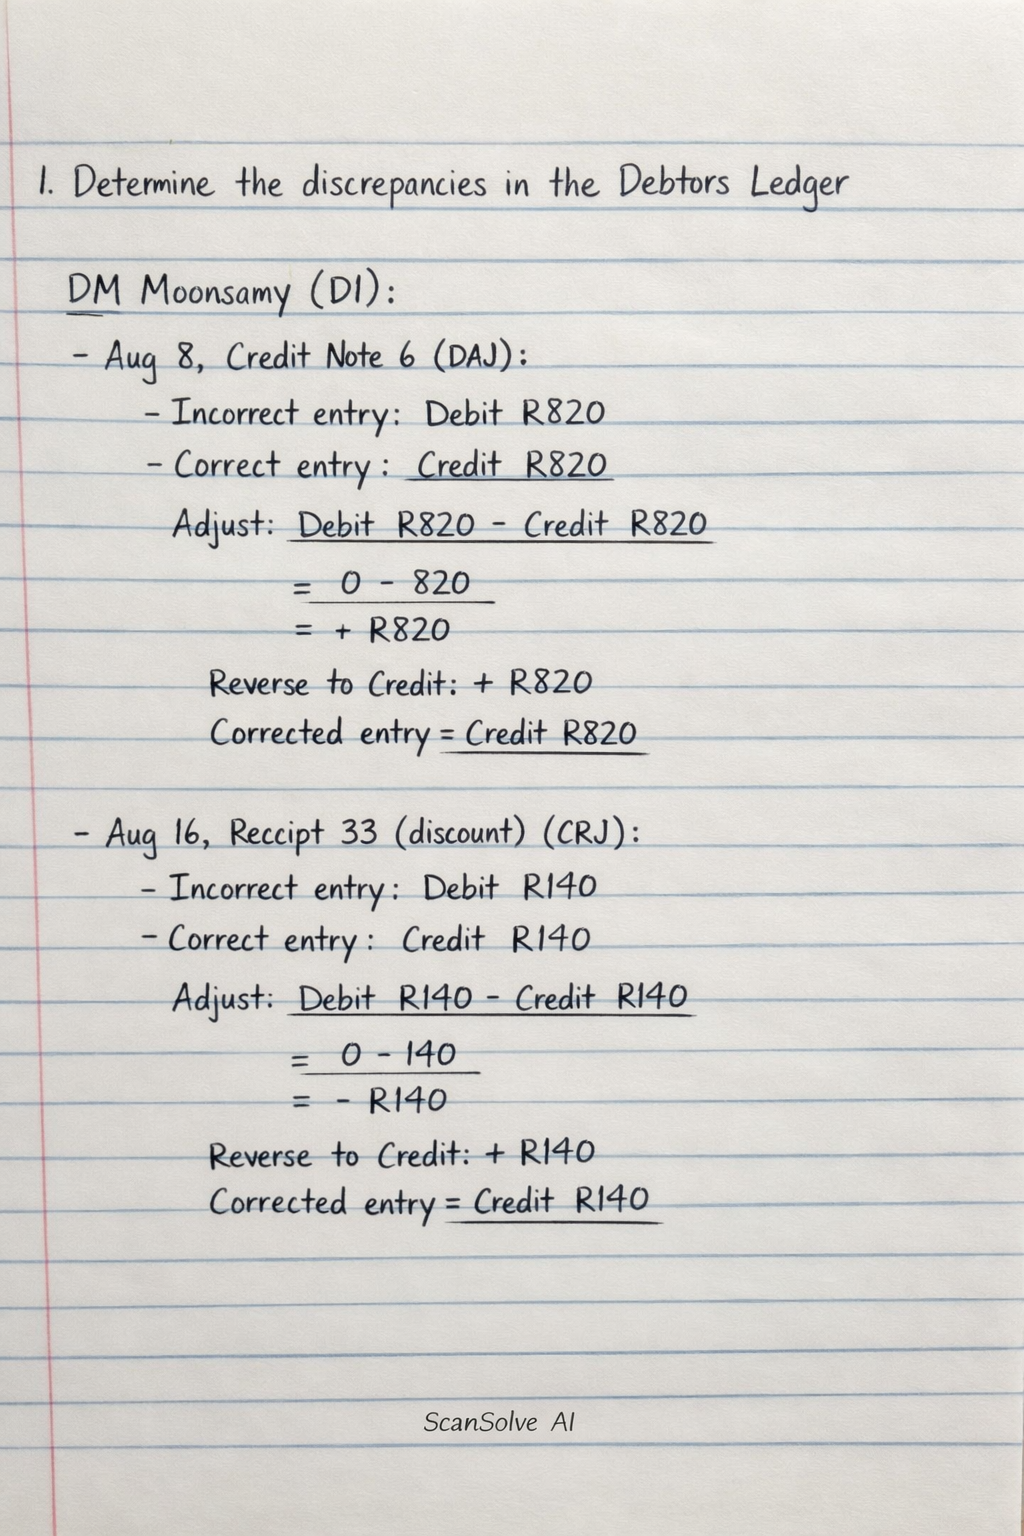 1. Determine the discrepancies in the Debtors Ledger
DM Moonsamy (D1):
- Aug 8, Credit Note 6 (DAJ):
- Incorrect entry: Debit R820
- Correct entry: Credit R820
Adjust: Debit R820 - Credit R820
= 0 - 820
= + R820
Reverse to Credit: + R820
Corrected entry = Credit R820
- Aug 16, Reccipt 33 (discount) (CRJ):
- Incorrect entry: Debit R140
- Correct entry: Credit R140
Adjust: Debit R140 - Credit R140
= 0 - 140
= - R140
Reverse to Credit: + R140
Corrected entry = Credit R140
ScanSolve AI